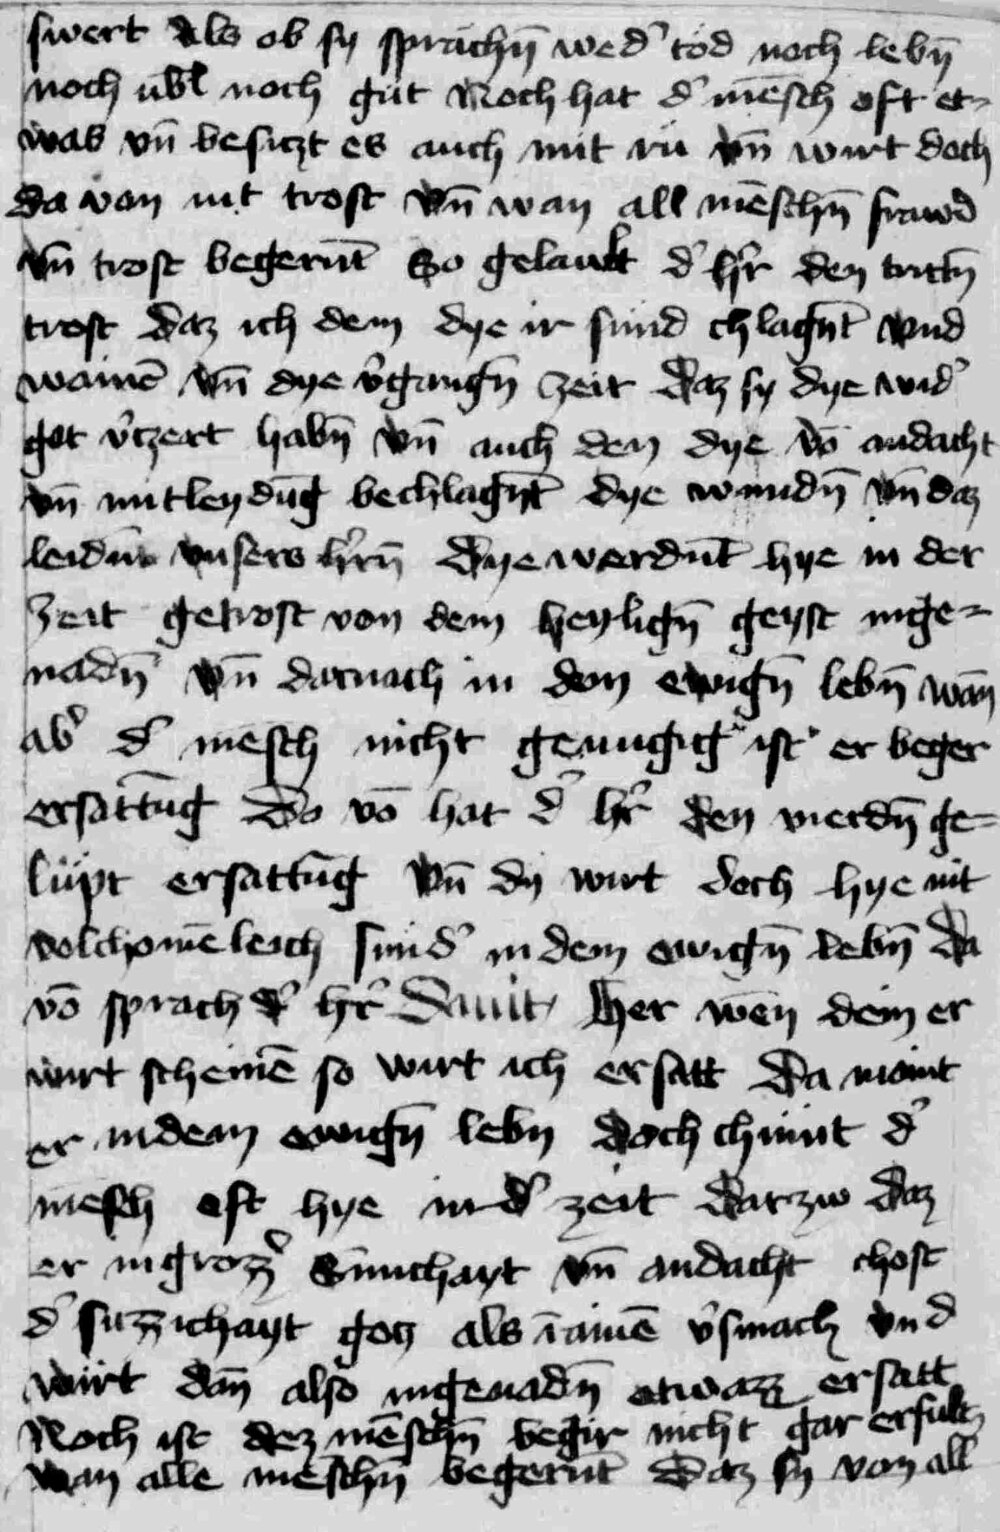 swert als ob sy sprächn̄ wed̕ tod noch lebn̄
noch übl noch gut Noch hat d̕ mēsch oft et=
was vn̄ besiczt es auch mit ru vn̄ wirt doch
da von nit trost vn̄ wan all mēschn̄ frawd
vn̄ trost begernt̄ So gelaubt d̕ h̕r den trittn̄
trost daz ich dem dye ir sünd chlagnt̄ vnd
wainē vn̄ dye v̕gangn̄ zeit daz sy dye wid̕
got v̕tzert habn̄ vn̄ auch den dye vō andacht
vn̄ mitleydūg bechlagnt̄ dye wundn̄ vn̄ daz
leidn̄ vnsers h̕rn̄ Dye werdnt̄ hye in der
zeit getrost von dem heylign̄ geyst inge=
nadn̄ vn̄ darnach in dem ewign̄ lebn̄ wan̄
ab̕ d̕ mēsch nicht genugig ist er beger
ersattūg Do vō hat d̕ h̕r den vierdn̄ ge=
lüpt ersattūg vn̄ dy wirt doch hye nit
volchomēleich sund̕ in dem ewign̄ lebn̄ Da
vō sprach d̕ h̕r Dauit Her wen̄ dein er
wirt scheinē so wirt ich ersatt Da maint
er indem ewign̄ lebn̄ doch chumt d̕
mēsch oft hye in d̕ zeit darzw daz
er ingrozz̕ Sunchayt vn̄ andacht chost
d̕ suzzichayt gotz als ī ainē v̕smach vnd
wirt dan̄ also ingenadn̄ etwazz ersatt
Noch ist dez mēschn̄ begir nicht gar erfult
wan alle mēschn̄ begernt̄ Daz sy von all